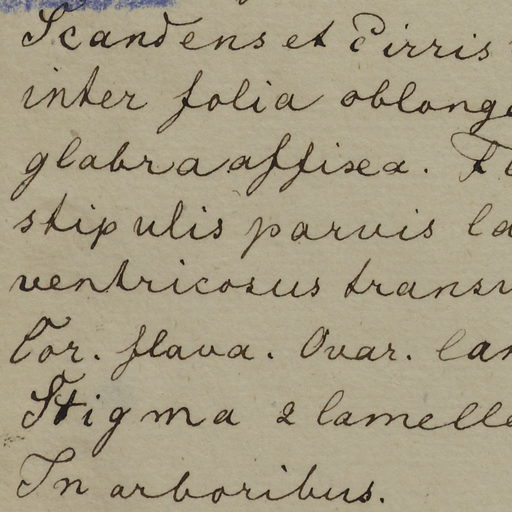 Scandens et Cirris
inter folia oblonga
glabra affixa.
stipulis parvis
ventricosus
Cor. flava. Ovar.
Stigma 2
In arboribus.